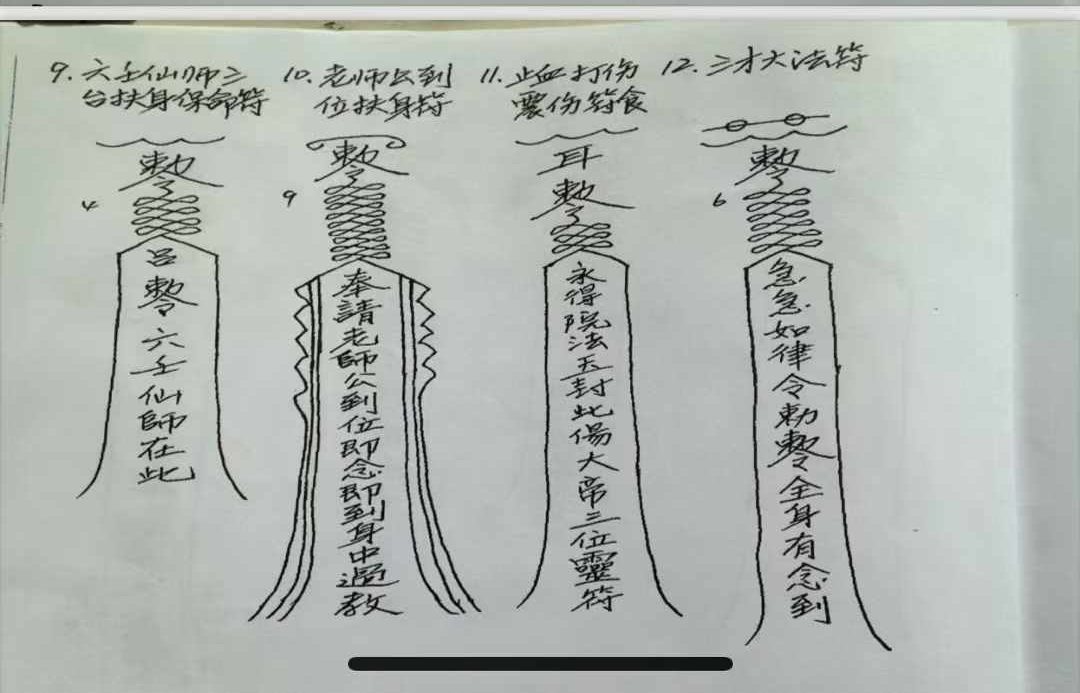 9. 六壬仙师三
台扶身保命符
10. 老师公到
位扶身符
11. 止血打伤
震伤符食
12. 三才大法符
敕令
4
吕
敕令
六壬仙師在此
敕令
9
奉請老師公到位即念即到身中過教
耳
敕令
永得院法玉封此傷大帝三位靈符
敕令
6
急急如律令勅敕令全身有念到